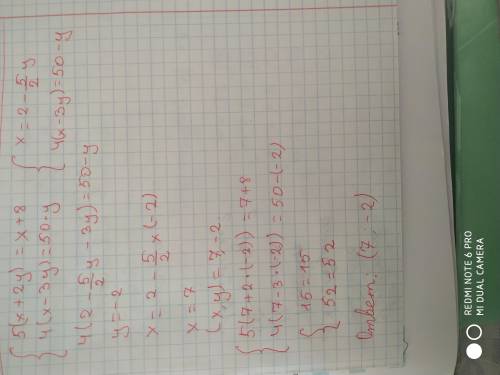 { 5(x+2y) = x+8
4(x-3y)=50-y
{ x = 2 - 5/2 y
4(x-3y)=50-y
4(2 - 5/2 y - 3y)=50-y
y=-2
x = 2 - 5/2 x (-2)
x = 7
(x,y) = 7,-2
{ 5(7+2·(-2)) = 7+8
4(7-3·(-2)) = 50-(-2)
{ 15=15
52=52
Ответ: (7; -2)
REDMI NOTE 6 PRO
MI DUAL CAMERA